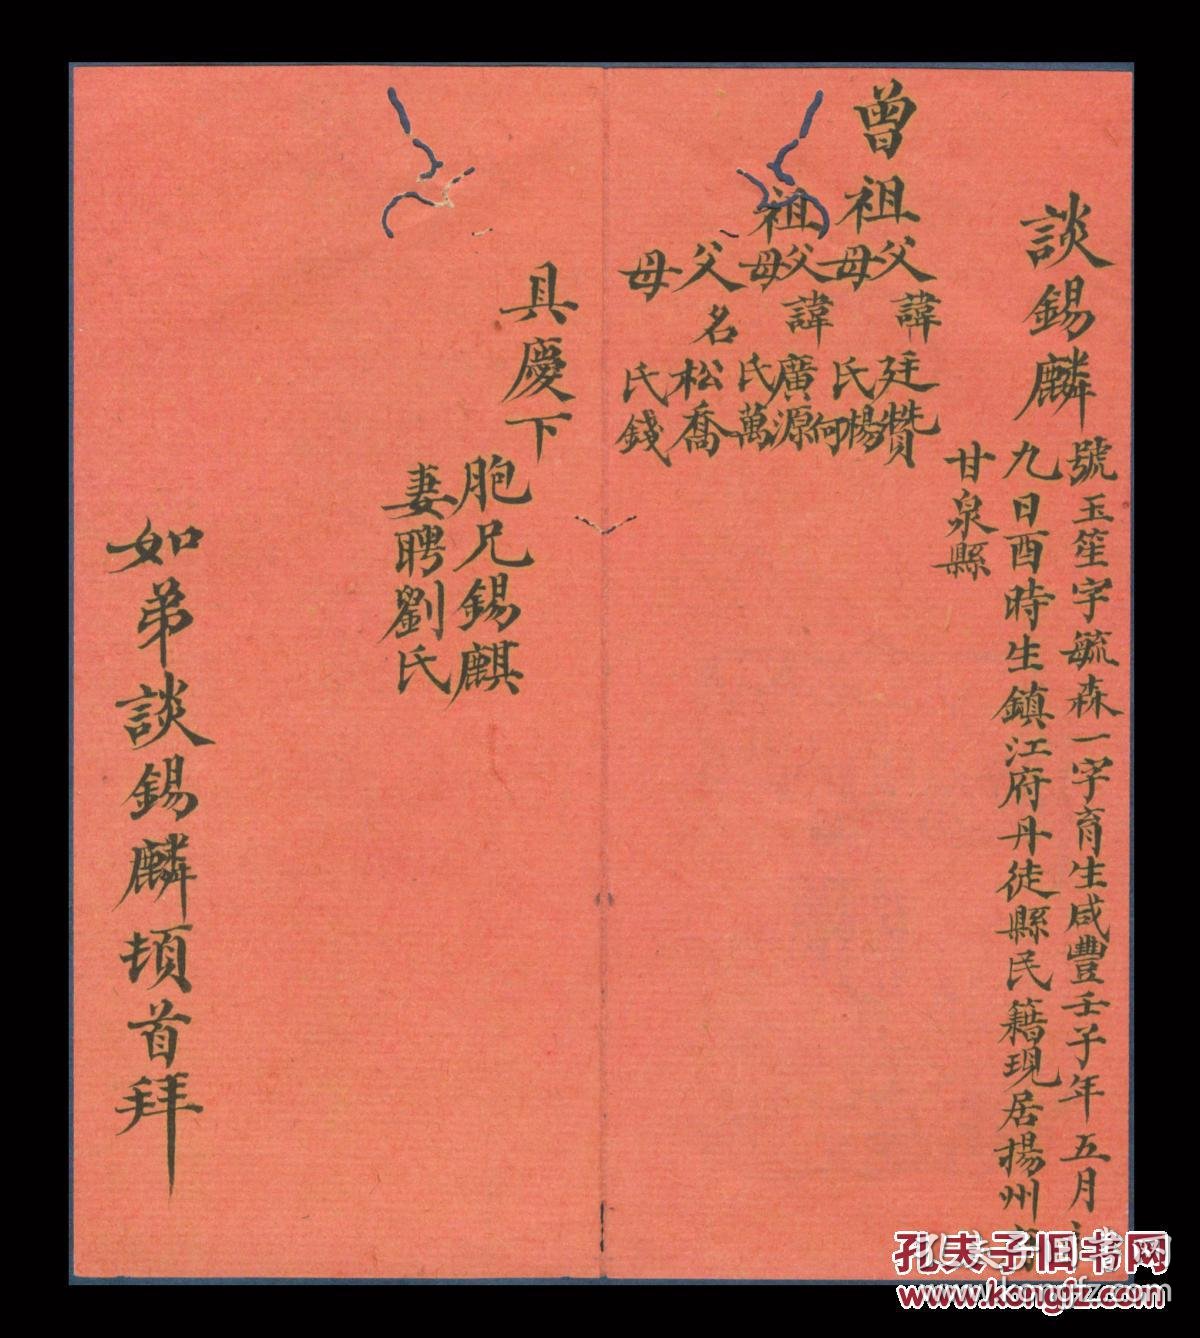 談錫麟
號玉笙字毓森一字育生咸豐壬子年五月
九日酉時生鎮江府丹徒縣民籍現居揚州
甘泉縣
曾祖父諱廷贊
母氏楊何
祖父諱廣源
母氏萬
父名松喬
母氏錢
具慶下
胞兄錫麒
妻聘劉氏
如弟談錫麟頓首拜
孔夫子旧书网
www.kongfz.com